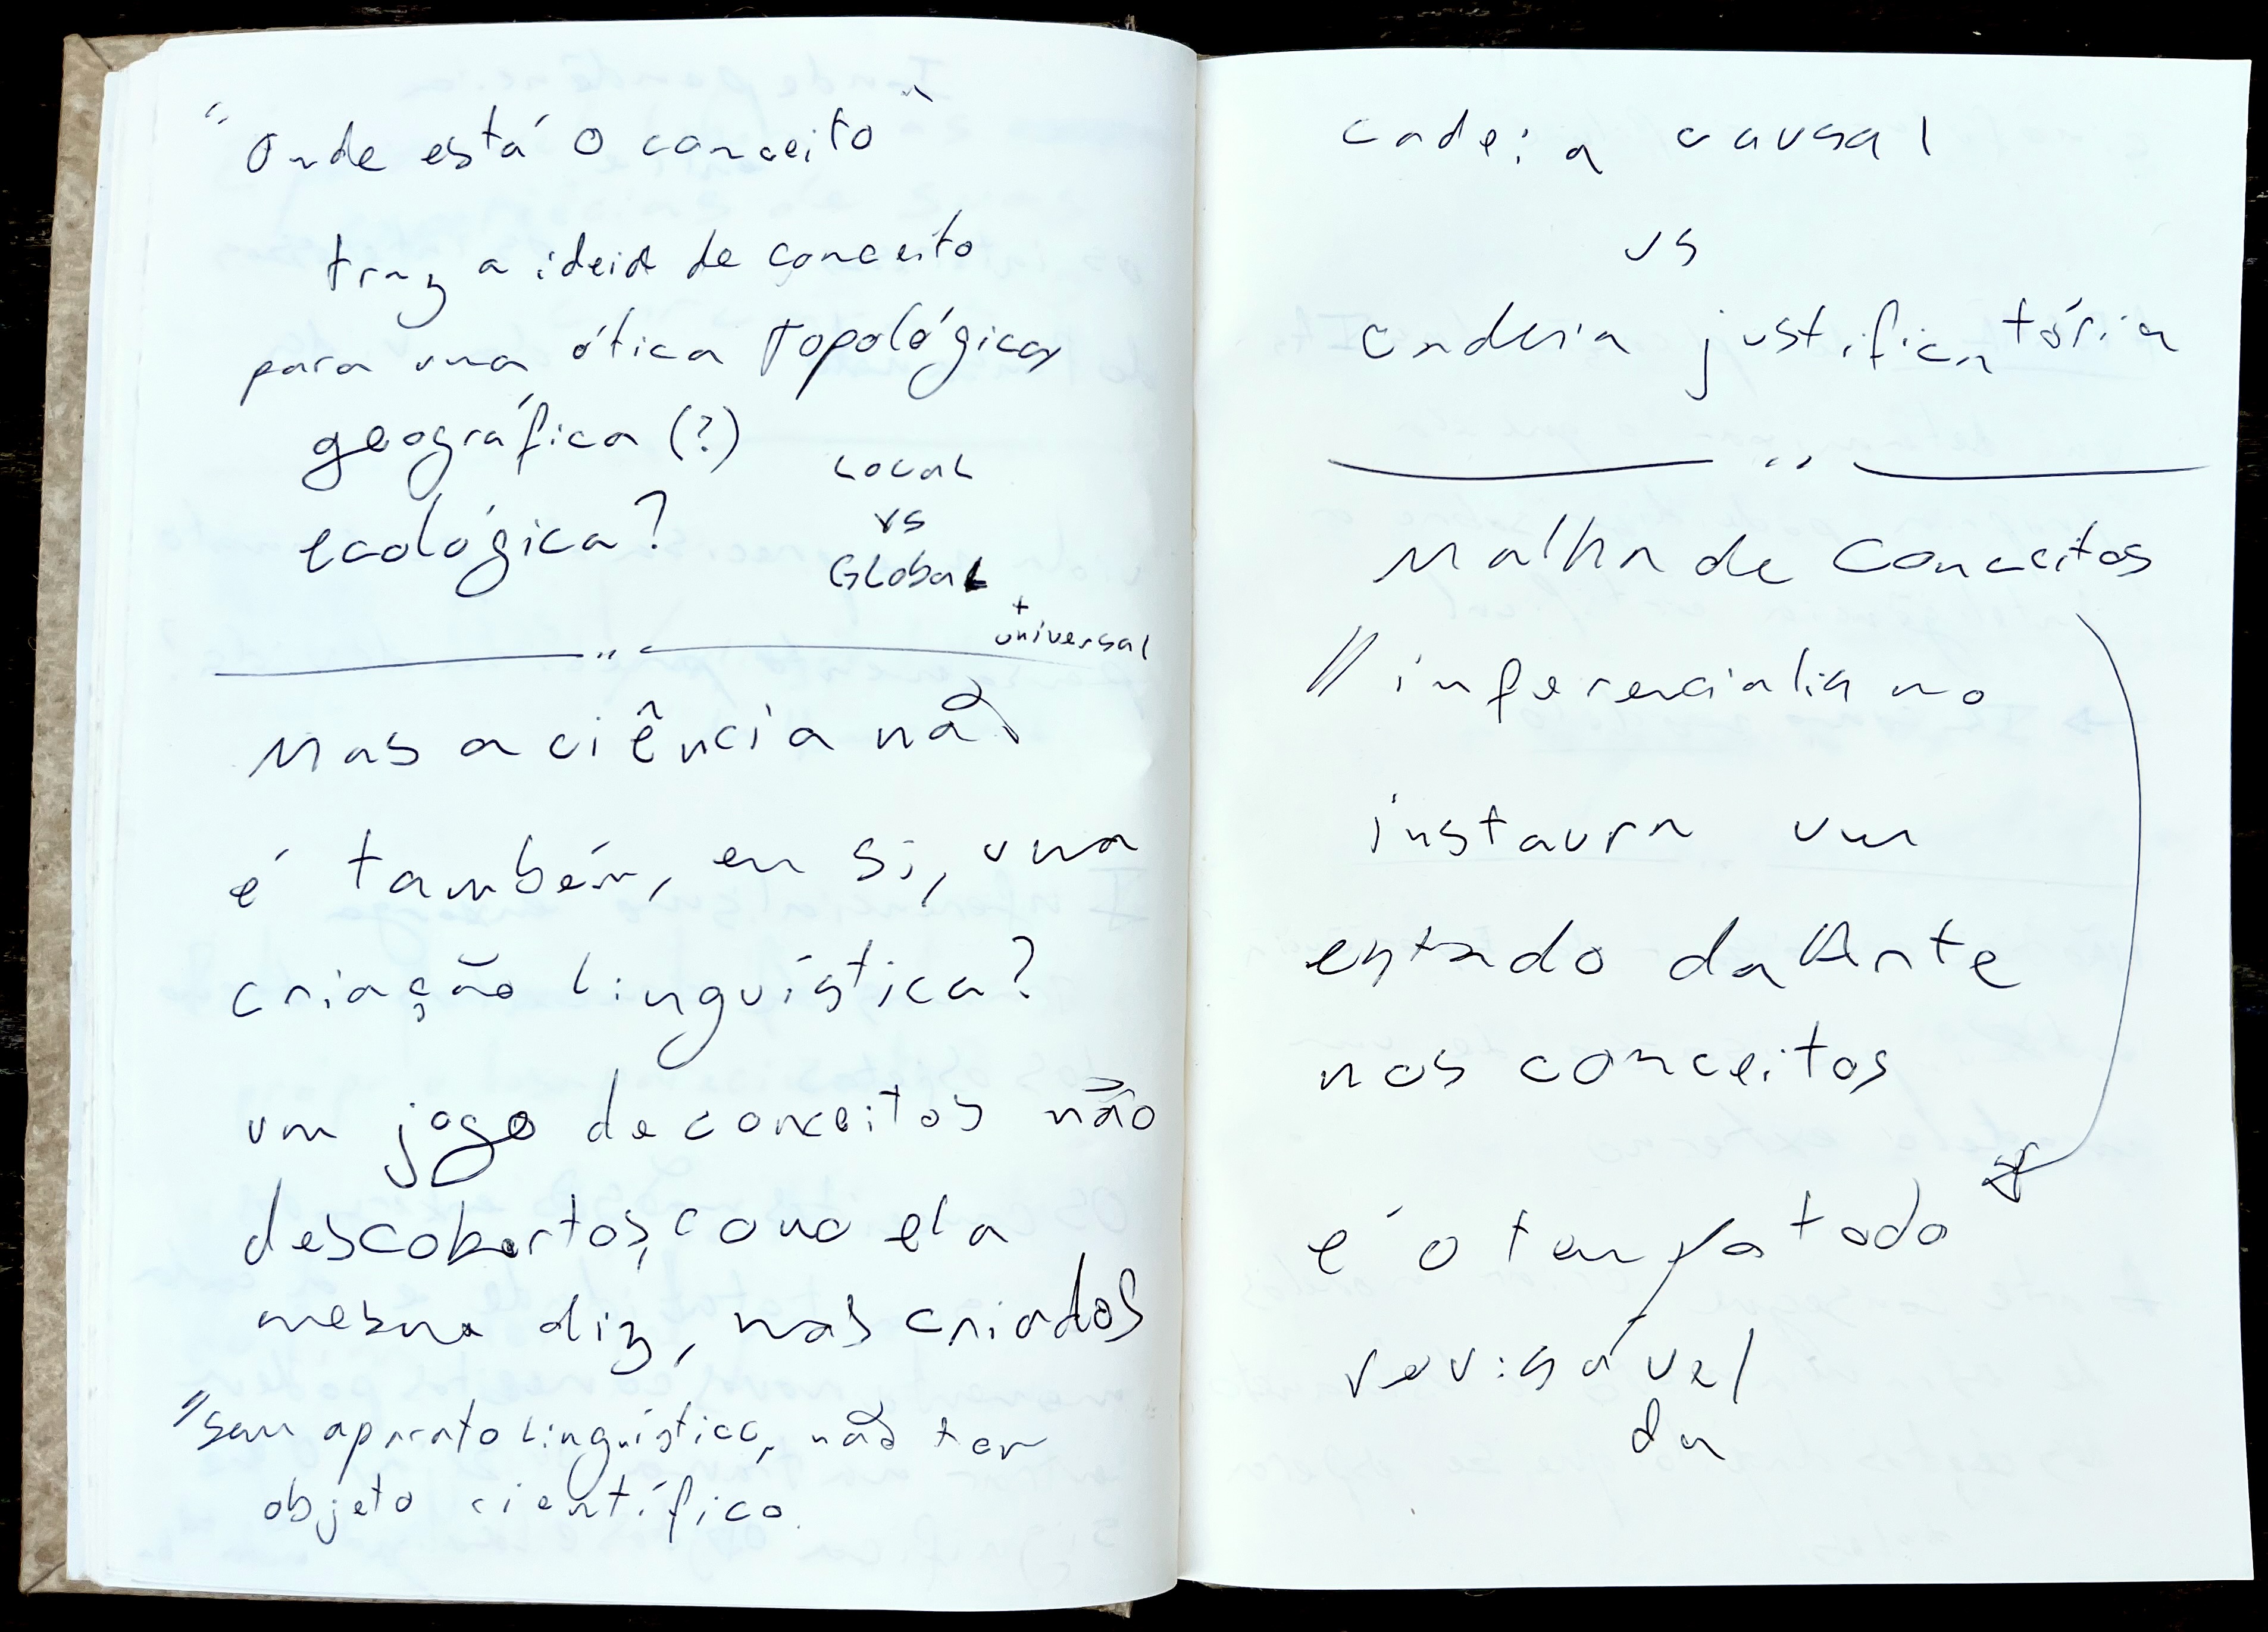 "Onde está o conceito"
traz a ideia de conceito
para uma ótica topológica
geográfica (?)
ecológica?
Local
vs
Global
+
universal
Mas a ciência não
é também, em si, uma
criação linguística?
um jogo de conceitos não
descobertos, como ela
mesma diz, mas criados
"sem aparato linguístico, não tem
objeto científico.
cadeia causal
vs
cadeia justificatória
Malha de conceitos
// inferencialismo
instaura um
estado da Arte
nos conceitos
é o tempo todo
revisável
da